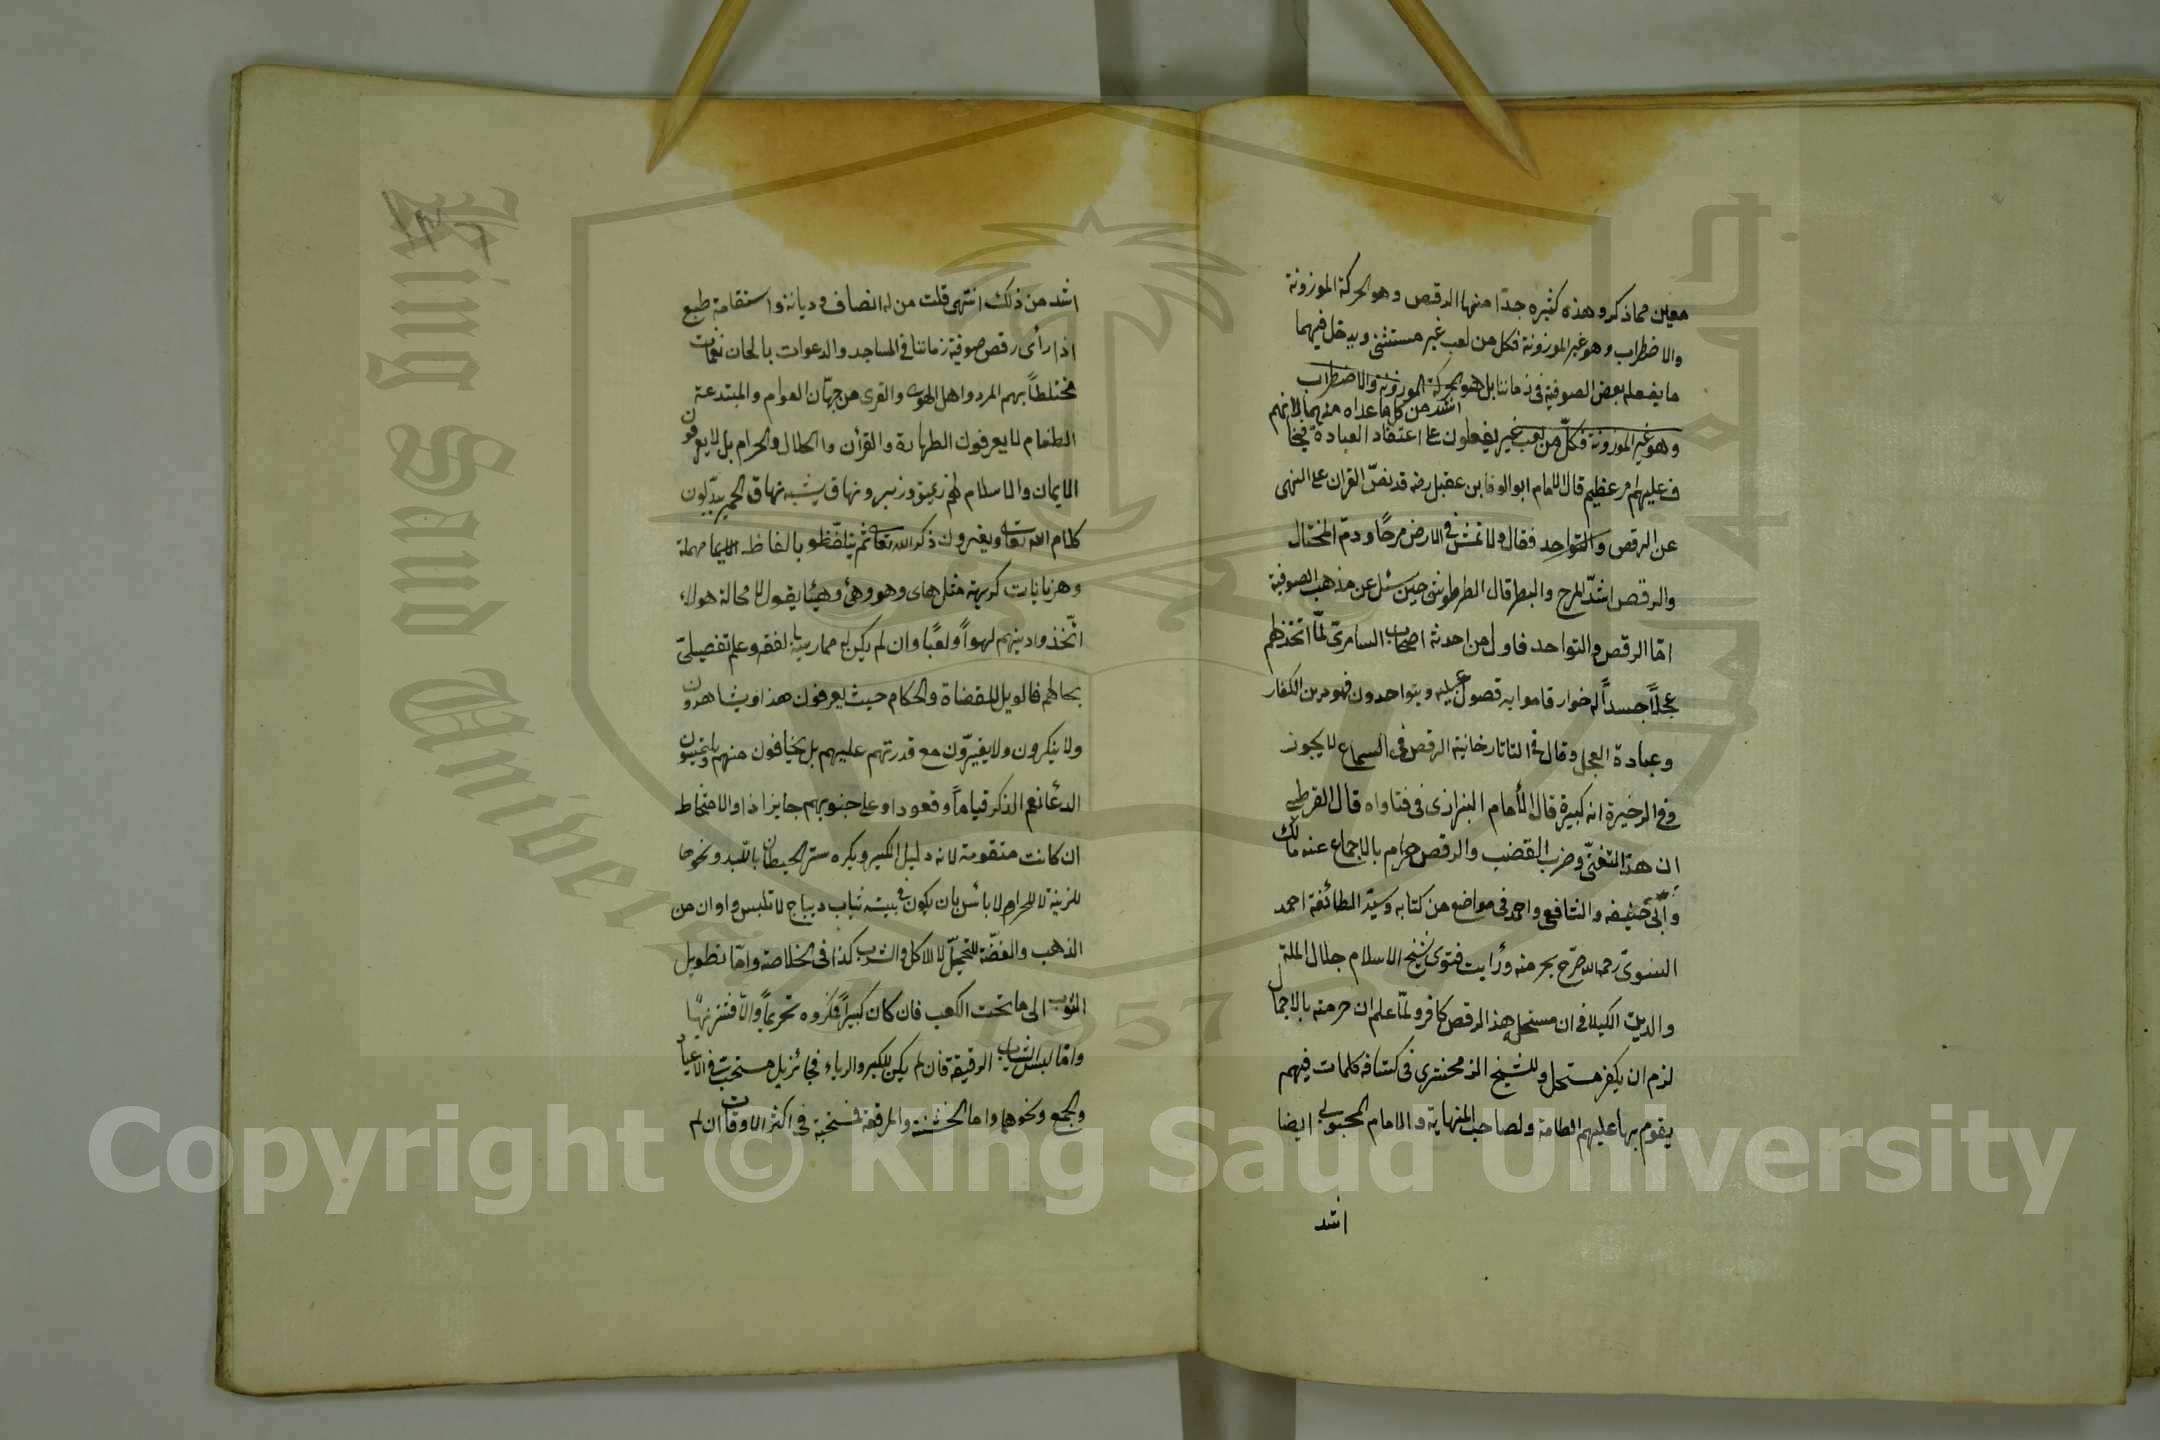 معين مما ذكر وهذه كثيرة جدّا منها الرقص وهو الحركة الموزونة
والاضطراب وهو غير الموزونة فكل من لعب غير مستثنى ويدخل فيهما
ما يفعله بعض الصوفية في زماننا بل هو الحركة الموزونة والاضطراب
اشد من كل ما عداه منهما لانهم
وهو غير الموزونة فكلّ من لعب غير يفعلون على اعتقاد العبادة فيخا
ف عليهم امر عظيم قال الامام ابو الوفا بن عقيل رضه قد نصّ القران على النهى
عن الرقص والتواجد فقال ولا تمش في الارض مرحًا وذمّ المختال
والرقص اشدّ المرح والبطر قال الطرطوشي حين سئل عن مذهب الصوفية
امّا الرقص والتواجد فاول من احدثه اصحاب السامريّ لمّا اتخذ لهم
عجلًا جسدًا له خوار قاموا يرقصون عليه ويتواجدون فهو دين الكفار
وعبادة العجل وقال في التاتارخانية الرقص في السماع لا يجوز
وفي الذخيرة انه كبيرة قال الأمام البزازى في فتاواه قال القرطبي
ان هذا التغنّى وضرب القضيب والرقص حرام بالاجماع عند مالك
وابى حنيفه والشافعى واحمد فى مواضع من كتابه وسيّد الطائفة احمد
النسوىّ رحمه الله صرّح بحرمته ورأيت فتوى شيخ الاسلام جلال الملة
والدين الكيلانى ان مستحل هذا الرقص كافر ولمّا علم ان حرمته بالاجماع
لزم ان يكفر مستحل وللشيخ الزمخشرى فى كشافه كلمات فيهم
يقوم بها عليهم الطامة ولصاحب النهاية والامام المحبوبي ايضا
اشد
١٣٦
اشد من ذلك انتهى قلت من له انصاف وديانة واستقامة طبع
اذا رأى رقص صوفية زماننا فى المساجد والدعوات بالحان نغمات
مختلطًا بهم المرد واهل الهوى والقرى من جهّال العوام والمبتدعة
الطغام لا يعرفون الطهارة والقرأن والحلال والحرام بل لا يعرفون
الايمان والاسلام لهم زعيق وزئير ونهاق يشبه نهاق الحمير يبدّلون
كلام الله تعالى ويغيرون ذكر الله تعالى ثم يتلفّظو بالفاظ مهملة
وهزيانات كريهة مثل هاى وهو وهئ وهيئا يقول لا محالة هولاء
اتّخذوا دينهم لهوًا ولعبًا وان لم يكن له ممارسة لفقه وعلم تفصيلىّ
بحالهم فالويل للقضاة والحكام حيث يعرفون هذا ويشاهدون
ولا ينكرون ولا يغيرّون مع قدرتهم عليهم بل يخافون منهم ويلتمسون
الدعا نعم الذكر قيامًا وقعودا وعلى جنوبهم جايز اذا
ان كانت متقومة لانه دليل الكبر ويكره ستر الحيطان باللبد ونحوها
للزينة لا للحر ولا بأس بان يكون فى بيته ثياب ديباج لا تلبس واوان من
الذهب والفضّة للتجمّل لا للاكل والشرب كذا فى الخلاصة وامّا تطويل
الثوب الى ما تحت الكعب فان كان كبرًا فكروه تحريمًا والّا فتنزيهًا
وامّا لبس الثياب الرقيقة فان لم يكن للكبر والرياء فجائز بل مستحبّ فى الاعياد
والجمع ونحوهما واما الخشنة والمرقعة فمستحبة فى اكثر الاوقات ان لم
King Saud University
1957
Copyright © King Saud University